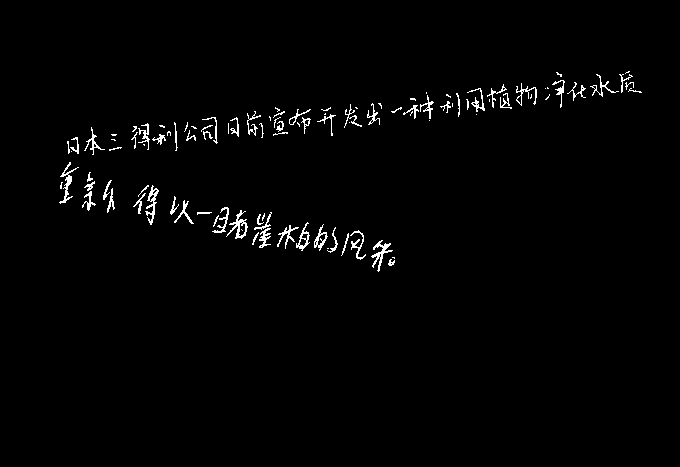 日本三得利公司日前宣布开发出一种利用植物净化水质
得以一睹崖柏的风采。